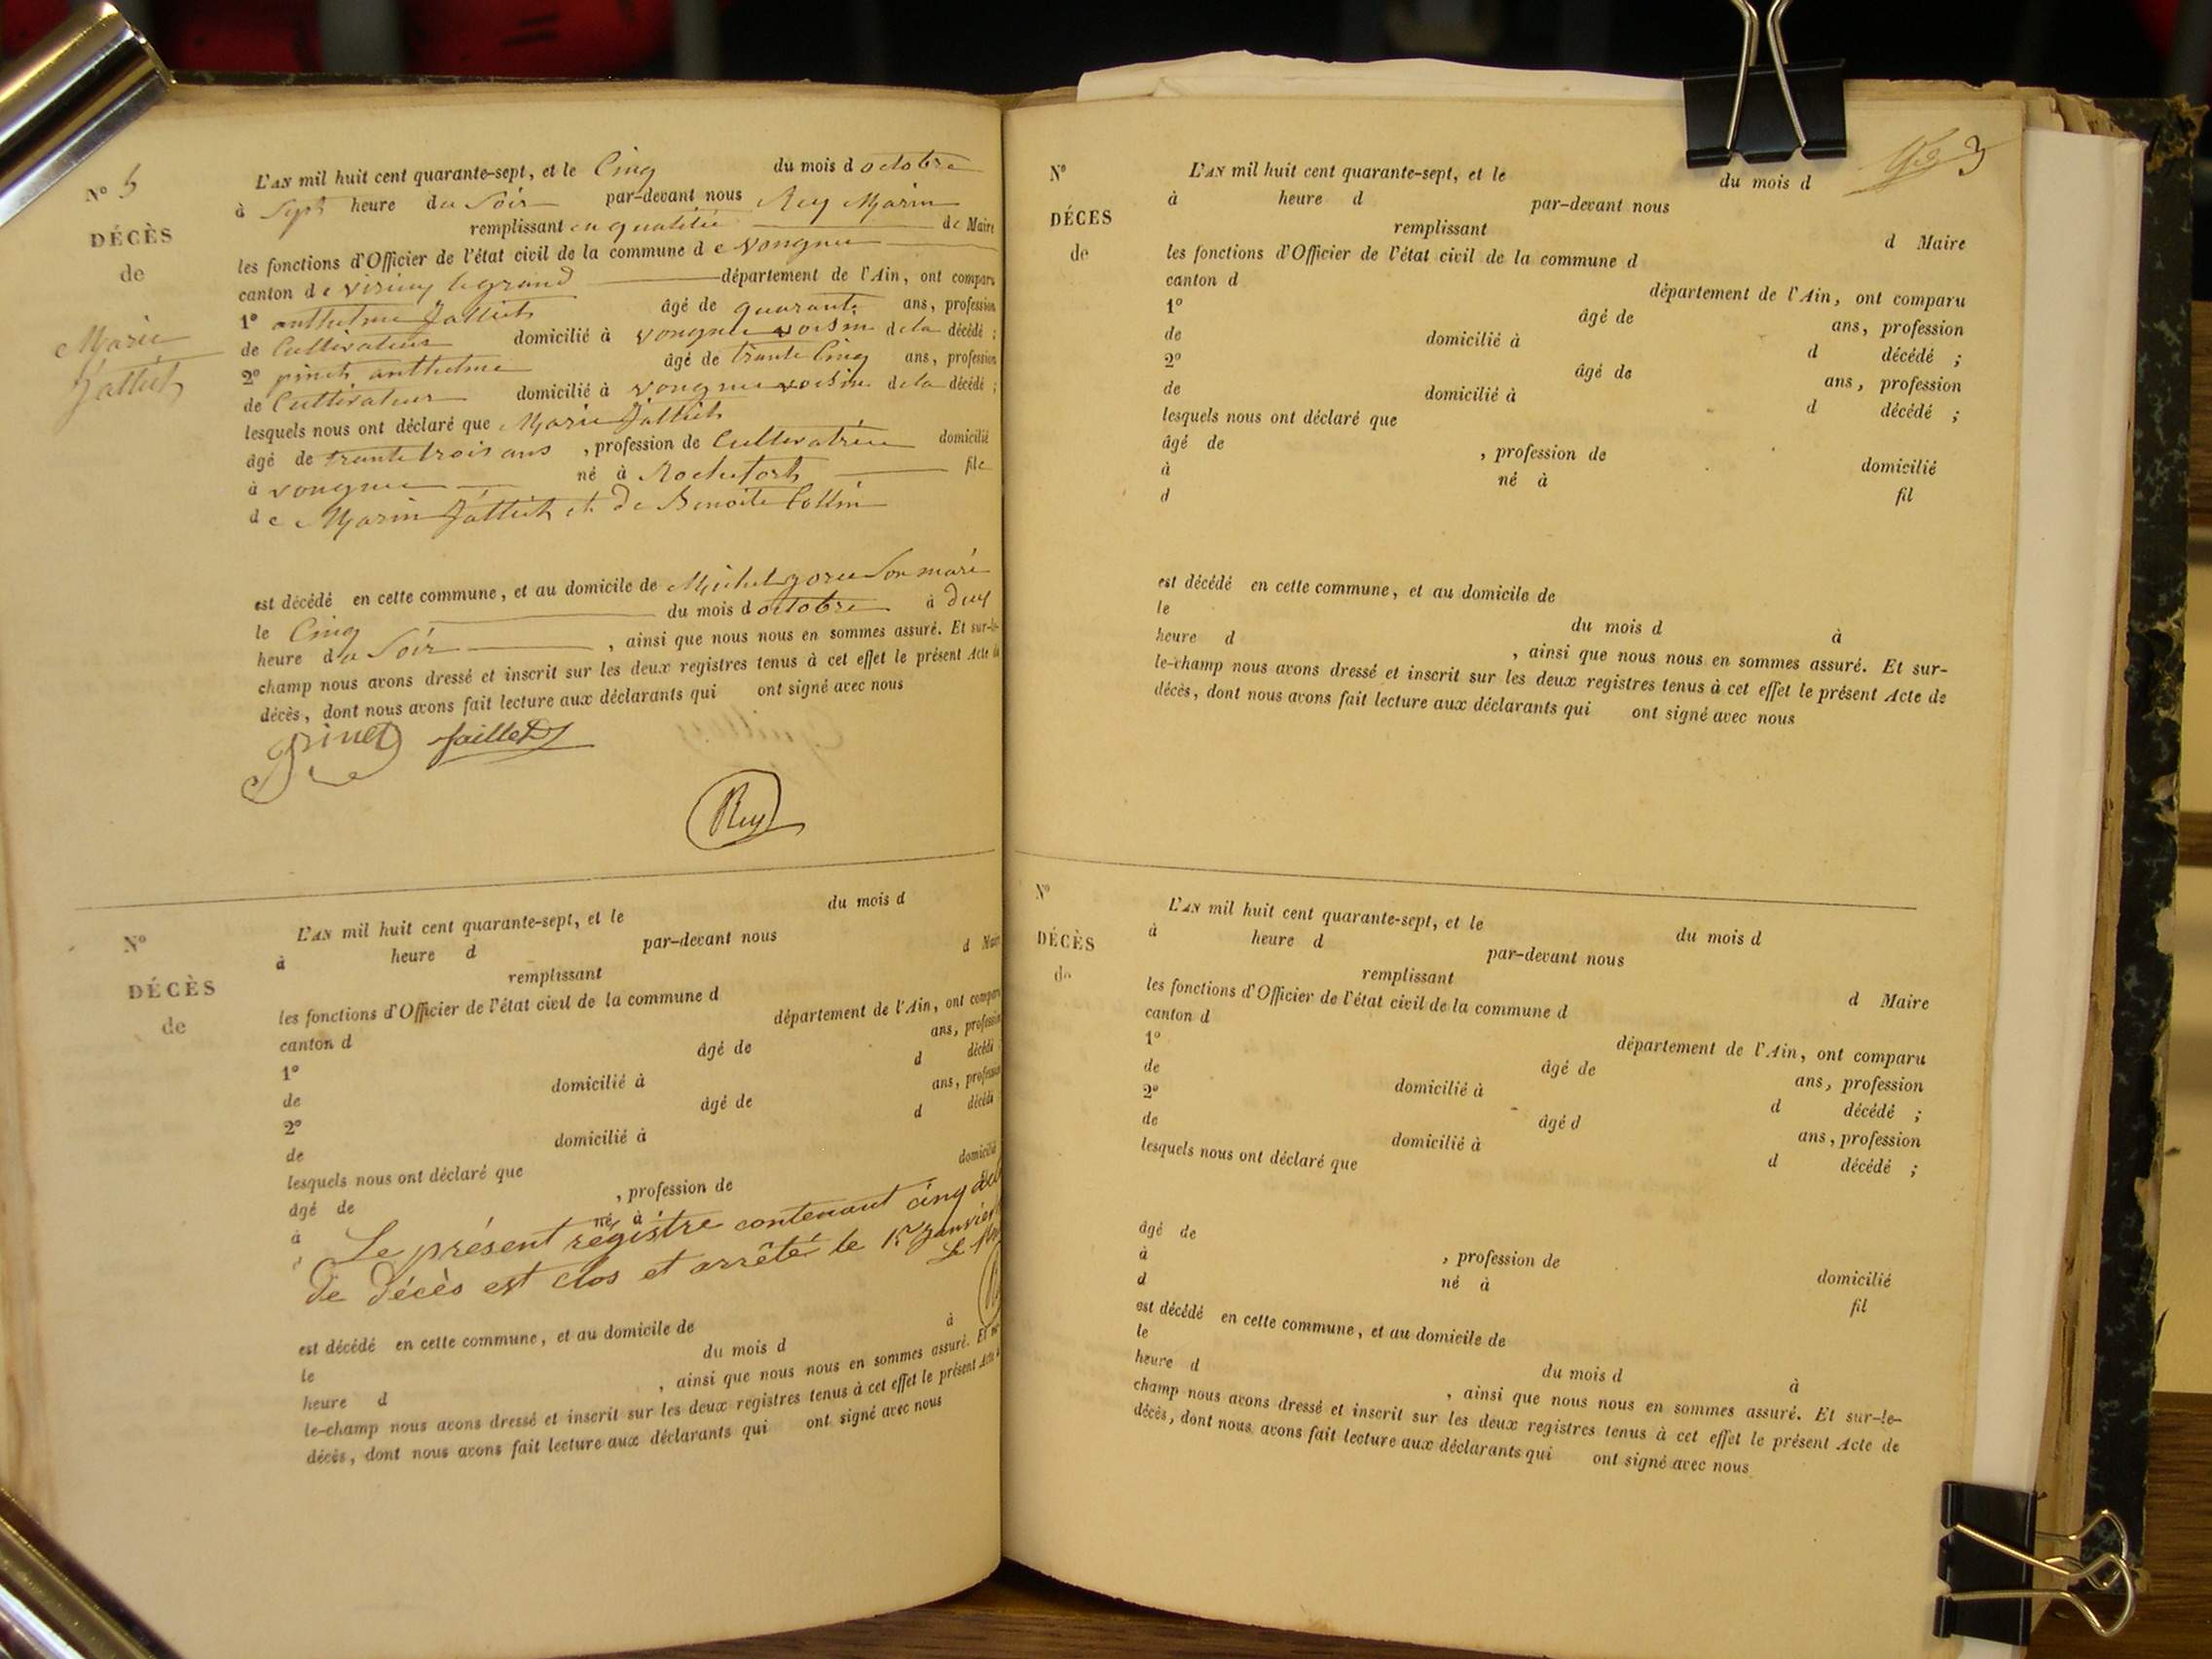 N° 5
DÉCÈS
de
Marie
Jalliet
L'AN mil huit cent quarante-sept, et le Cinq du mois d octobre
à Sept heure du Soir par-devant nous Rey Marin
remplissant en qualitée de Maire
les fonctions d'Officier de l'état civil de la commune d e vongnes
canton d e virieu legrand département de l'Ain, ont comparu
1° anthelme Jalliet âgé de quarante ans, profession
de Cultivateur domicilié à vongnes voisin de la décédé ;
2° pinet anthelme âgé de trante Cinq ans, profession
de Cultivateur domicilié à vongnes voisin de la décédé ;
lesquels nous ont déclaré que Marie Jalliet
âgé de trante trois ans , profession de Cultivatrice domicilié
à vongnes né à Rochefort file
d e Marin Jalliet et de Benoite Collin
est décédé en cette commune, et au domicile de Michel son mari
le Cinq du mois d octobre à deux
heure du Soir , ainsi que nous nous en sommes assuré. Et sur-le-
champ nous avons dressé et inscrit sur les deux registres tenus à cet effet le présent Acte de
décès, dont nous avons fait lecture aux déclarants qui ont signé avec nous
Pinet Jaillet
Rey
N°
DÉCÈS
de
L'AN mil huit cent quarante-sept, et le du mois d
à heure d par-devant nous
remplissant d Maire
les fonctions d'Officier de l'état civil de la commune d
canton d département de l'Ain, ont comparu
1° âgé de ans, profession
de domicilié à d décédé
2° âgé de ans, profession
de domicilié à d décédé
lesquels nous ont déclaré que
âgé de , profession de domicilié
à né à
d
Le présent registre contenant cinq actes
de décès est clos et arrêté le 1er janvier
Le
est décédé en cette commune, et au domicile de
le du mois d à
heure d , ainsi que nous nous en sommes assuré. Et sur-
le-champ nous avons dressé et inscrit sur les deux registres tenus à cet effet le présent Acte de
décès, dont nous avons fait lecture aux déclarants qui ont signé avec nous
3
N°
DÉCES
de
L'AN mil huit cent quarante-sept, et le du mois d
à heure d par-devant nous
remplissant d Maire
les fonctions d'Officier de l'état civil de la commune d
canton d département de l'Ain, ont comparu
1° âgé de ans, profession
de domicilié à d décédé ;
2° âgé de ans, profession
de domicilié à d décédé ;
lesquels nous ont déclaré que
âgé de , profession de domicilié
à né à fil
d
est décédé en cette commune, et au domicile de
le du mois d à
heure d , ainsi que nous nous en sommes assuré. Et sur-
le-champ nous avons dressé et inscrit sur les deux registres tenus à cet effet le présent Acte de
décès, dont nous avons fait lecture aux déclarants qui ont signé avec nous
N°
DÉCÈS
de
L'AN mil huit cent quarante-sept, et le du mois d
à heure d par-devant nous
remplissant d Maire
les fonctions d'Officier de l'état civil de la commune d
canton d département de l'Ain, ont comparu
1° âgé de ans, profession
de domicilié à d décédé ;
2° âgé d ans, profession
de domicilié à d décédé ;
lesquels nous ont déclaré que
âgé de , profession de domicilié
à né à fil
d
est décédé en cette commune, et au domicile de
le du mois d à
heure d , ainsi que nous nous en sommes assuré. Et sur-le-
champ nous avons dressé et inscrit sur les deux registres tenus à cet effet le présent Acte de
décès, dont nous avons fait lecture aux déclarants qui ont signé avec nous